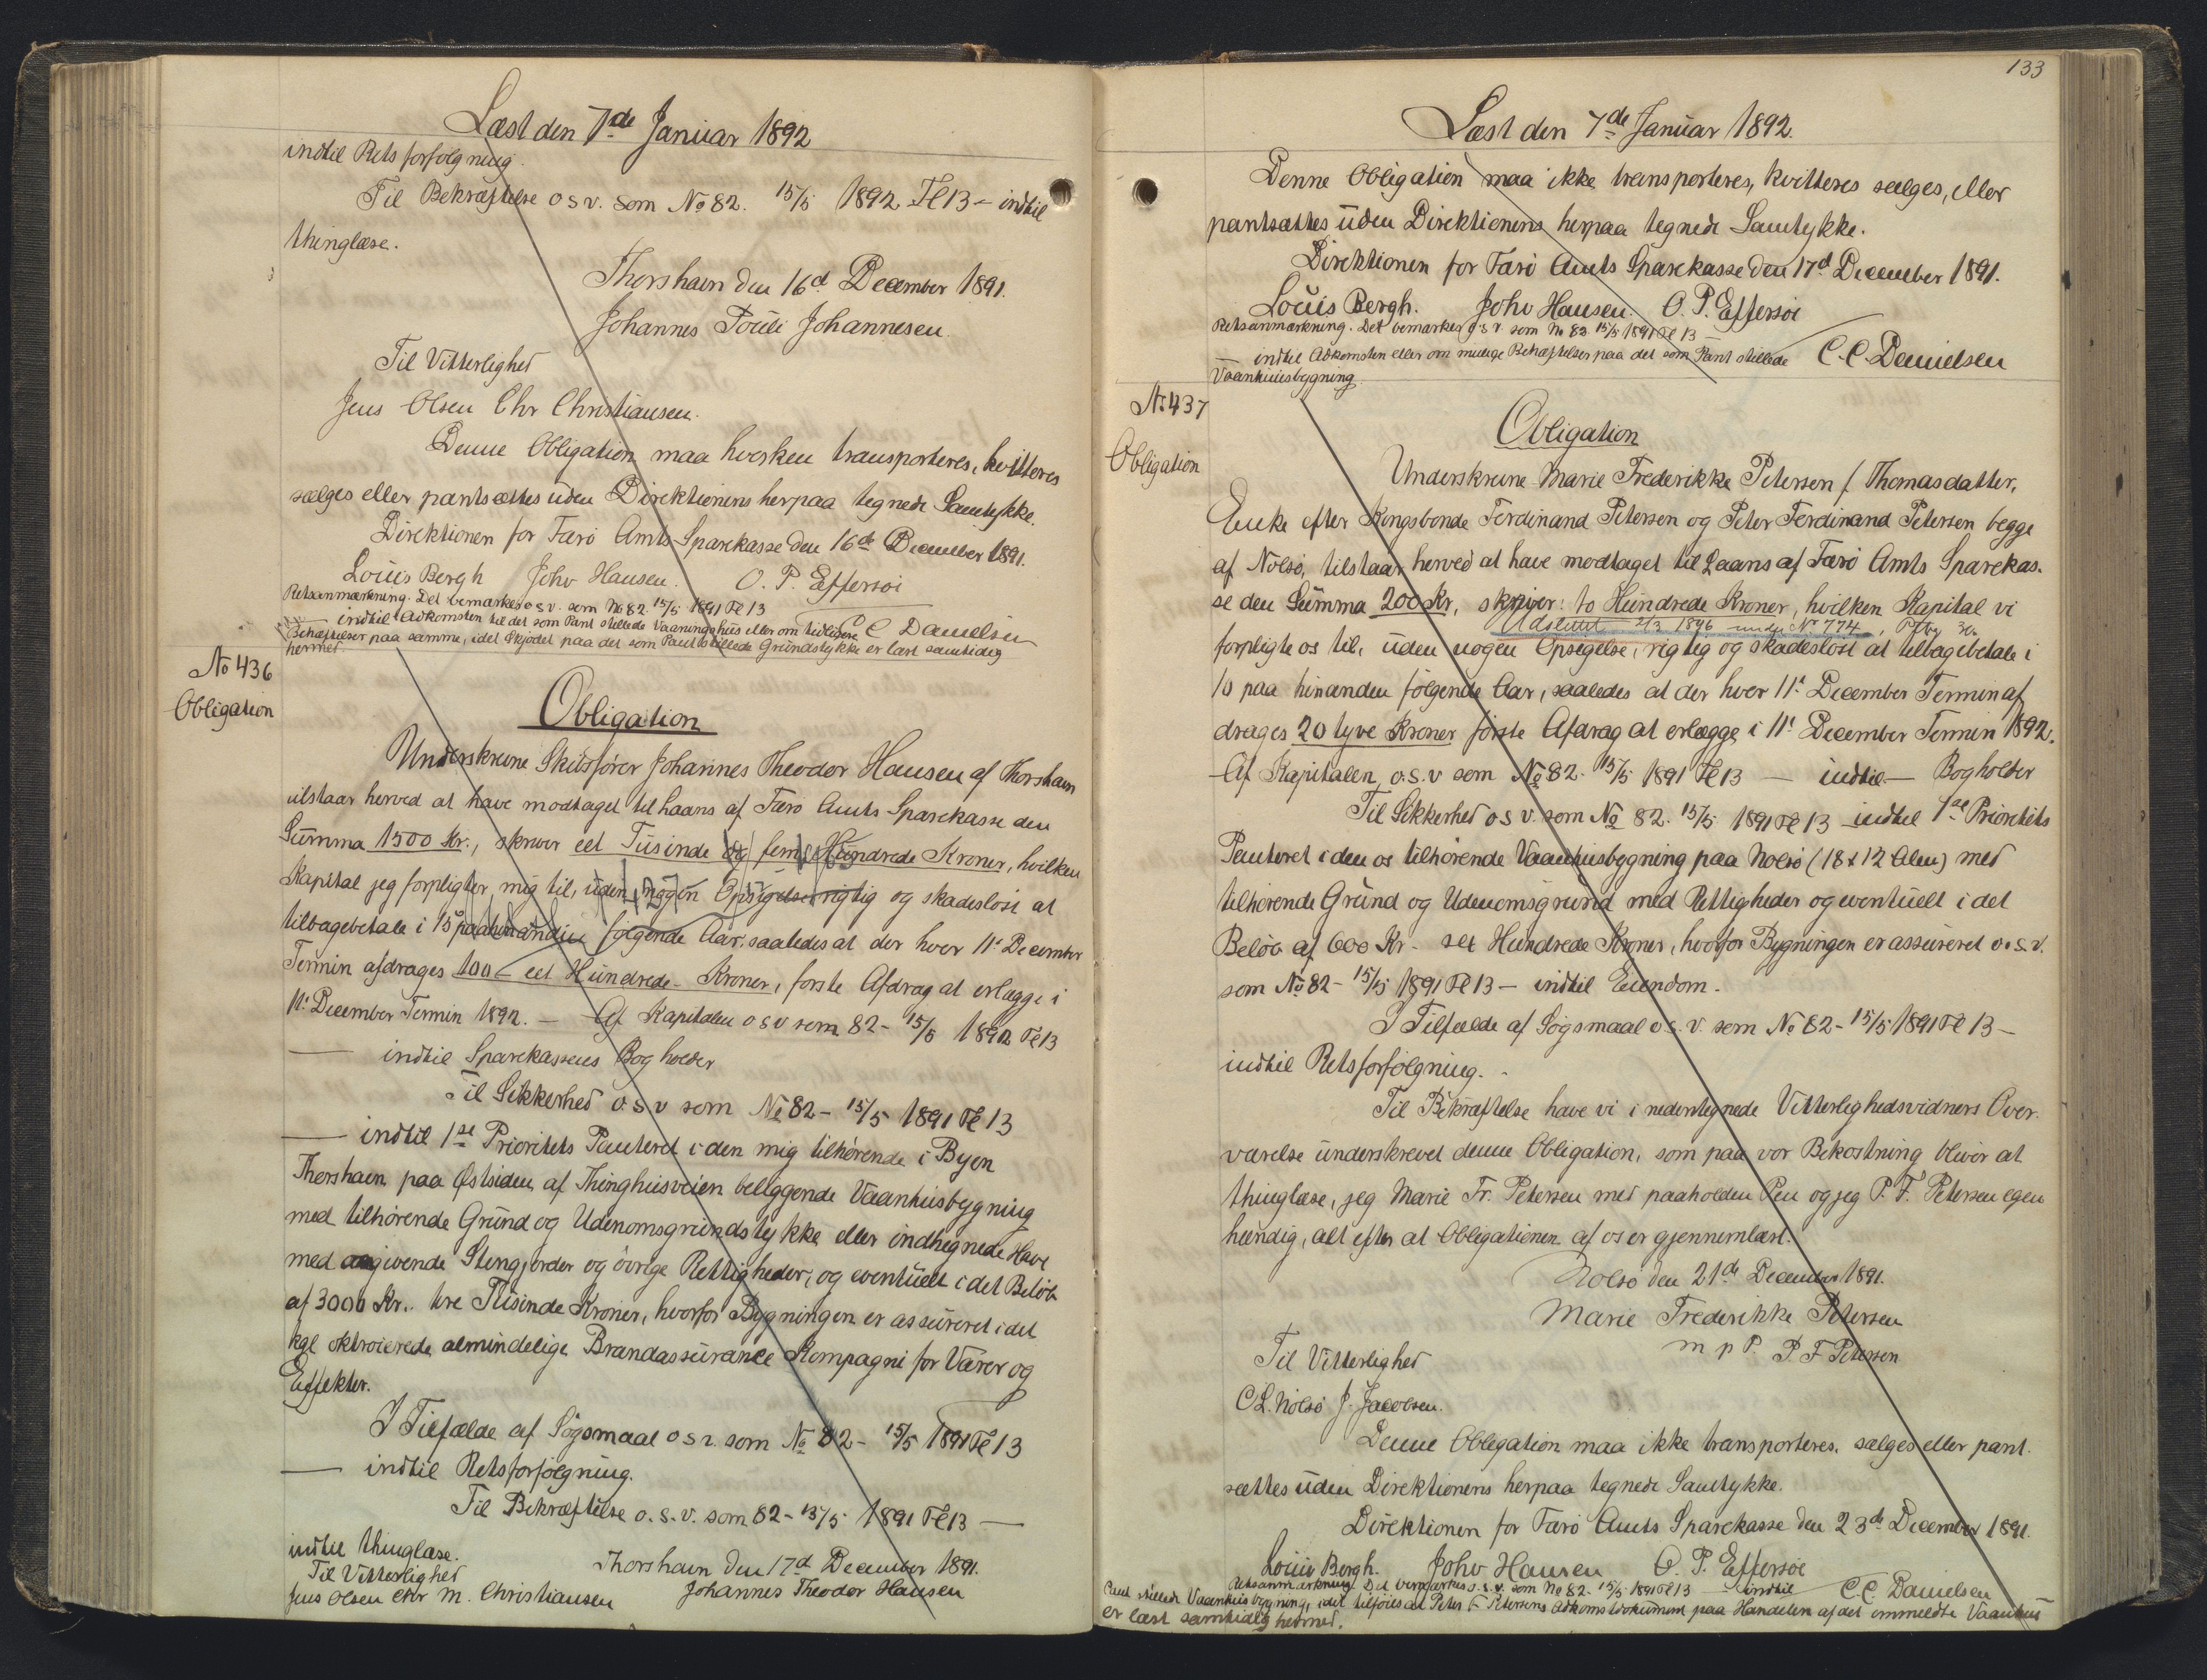 Læst den 7de Januar 1892
indtil Retsforfølgning.
Til Bekræftelse osv. som No 82. 15/5 1892 Fl 13 - indtil
thinglæse.
Thorshavn den 16d December 1891.
Johannes Pouli Johannesen.
Til Vitterlighed
Jens Olsen Chr Christiansen.
Denne Obligation maa hverken transporteres, kvitteres
sælges eller pantsættes uden Direktionens herpaa tegnede Samtykke.
Direktionen for Færö Amts Sparekasse den 16de December 1891.
Louis Bergh Johv Hansen. O. P. Effersöe
Retsanmærkning. Det bemærkes osv. som No 82 15/5 1891 Fl 13
indtil Adkomsten til det som Pant stillede Vaaningshuus eller om tidligere C C Danielsen
Behæftelser paa samme, idet Skjödet paa det som Pant stillede Grundstykke er læst samtidig
hermed.
No 436
Obligation
Obligation
Underskrevne Skibsförer Johannes Theodor Hansen af Thorshavn
tilstaar herved at have modtaget til Laans af Færö Amts Sparekasse den
Summa 1500 Kr., skriver eet Tusinde og fem Hundrede Kroner, hvilken
Kapital jeg forpligter mig til, uden nogen Opsigelse rigtig og skadeslöst at
tilbagebetale i 15 paahinanden følgende Aar, saaledes at der hver 11' December
Termin afdrages 100 - eet Hundrede - Kroner, förste Afdrag at erlægge i
11' December Termin 1892. - Af Kapitalen osv som 82 - 15/5 1892 Fl 13
— indtil Sparekassens Bogholder
Til Sikkerhed o.s.v som No 82 - 15/5 1891 Fl 13
— indtil 1ste Prioritets Panteret i den mig tilhörende i Byen
Thorshavn paa Østsiden af Thinghuusveien beliggende Vaanhuusbygning
med tilhörende Grund og Udenomsgrundstykke eller indhegnede Have
med omgivende Stengjerder og övrige Rettigheder, og eventuelt i det Belöb
af 3000 Kr. tre Tusinde Kroner, hvorfor Bygningen er assureret i det
kgl oktroierede almindelige Brandassurance Kompagni for Varer og
Effekter.
I Tilfælde af Sögsmaal osv. som No 82 - 15/5 1891 Fl 13
— indtil Retsforfölgning.
Til Bekræftelse o.s.v. som 82 - 15/5 1891 Fl 13 —
indtil thinglæse.
Thorshavn den 17d December 1891.
Til Vitterlighed
Jens Olsen Chr M. Christiansen Johannes Theodor Hansen
133
Læst den 7de Januar 1892.
Denne Obligation maa ikke transporteres, kvitteres sælges, eller
pantsættes uden Direktionens herpaa tegnede Samtykke.
Direktionen for Færö Amts Sparekasse den 17d December 1891.
Louis Bergh. Johv Hansen. O. P. Effersöe
Retsanmærkning. Det bemærkes o.s.v. som No 82 15/5 1891 Fl 13
indtil Adkomsten eller om mulige Behæftelser paa det som Pant stillede C. C. Danielsen
Vaanhuusbygning
No 437
Obligation
Obligation
Underskrevne Marie Frederikke Petersen f Thomasdatter,
Enke efter Kongsbonde Ferdinand Petersen og Peter Ferdinand Petersen begge
af Nolsö, tilstaar herved at have modtaget til Laans af Færö Amts Sparekas-
se den Summa 200 Kr, skriver: to Hundrede Kroner, hvilken Kapital vi
Udslettet 2/3 1896 under No 774,
forpligte os til, uden nogen Opsigelse, rigtig og skadeslöst at tilbagebetale i
10 paa hinanden følgende Aar, saaledes at der hver 11' December Termin af
drages 20 tyve Kroner förste Afdrag at erlægge i 11' December Termin 1892.
Af Kapitalen o.s.v som No 82. 15/5 1891 Fl 13 — indtil — Bogholder
Til Sikkerhed o s v. som No 82. 15/5 1891 Fl 13 indtil 1ste Prioritets
Panteret i den os tilhörende Vaanhuusbygning paa Nolsö (18 x 12 Alen) med
tilhörende Grund og Udenomsgrund med Rettigheder og eventuelt i det
Belöb af 600 Kr - sex Hundrede Kroner, hvorfor Bygningen er assureret o.s.v.
som No 82 - 15/5 1891 Fl 13 — indtil Eiendom.
I Tilfælde af Sögsmaal o.s.v. som No 82 - 15/5 1891 Fl 13 —
indtil Retsforfölgning.
Til Bekræftelse have vi i nedentegnede Vitterlighedsvidners Over-
værelse underskrevet denne Obligation, som paa vor Bekostning bliver at
thinglæse, jeg Marie Fr. Petersen med paaholden Pen og jeg P. F. Petersen egen
hændig, alt efter at Obligationen af os er gjennemlæst.
Nolsö den 21de December 1891.
Marie Frederikke Petersen
m p P. P. F Petersen
Til Vitterlighed
C. L. Nolsö J. Jacobsen.
Denne Obligation maa ikke transporteres. sælges eller pant-
sættes uden Direktionens herpaa tegnede Samtykke.
Direktionen for Færö Amts Sparekasse den 23de December 1891.
Louis Bergh. Johv Hansen O. P. Effersöe
Retsanmærkning. Det bemærkes o.s.v. som No 82. 15/5 1891 Fl 13 — indtil C. C Danielsen
Pant stillede Vaanhuusbygning, idet tilföies at Peter F Petersens Adkomstdokument paa Handelen af det ommeldte Vaanhuus
er læst samtidig hermed.